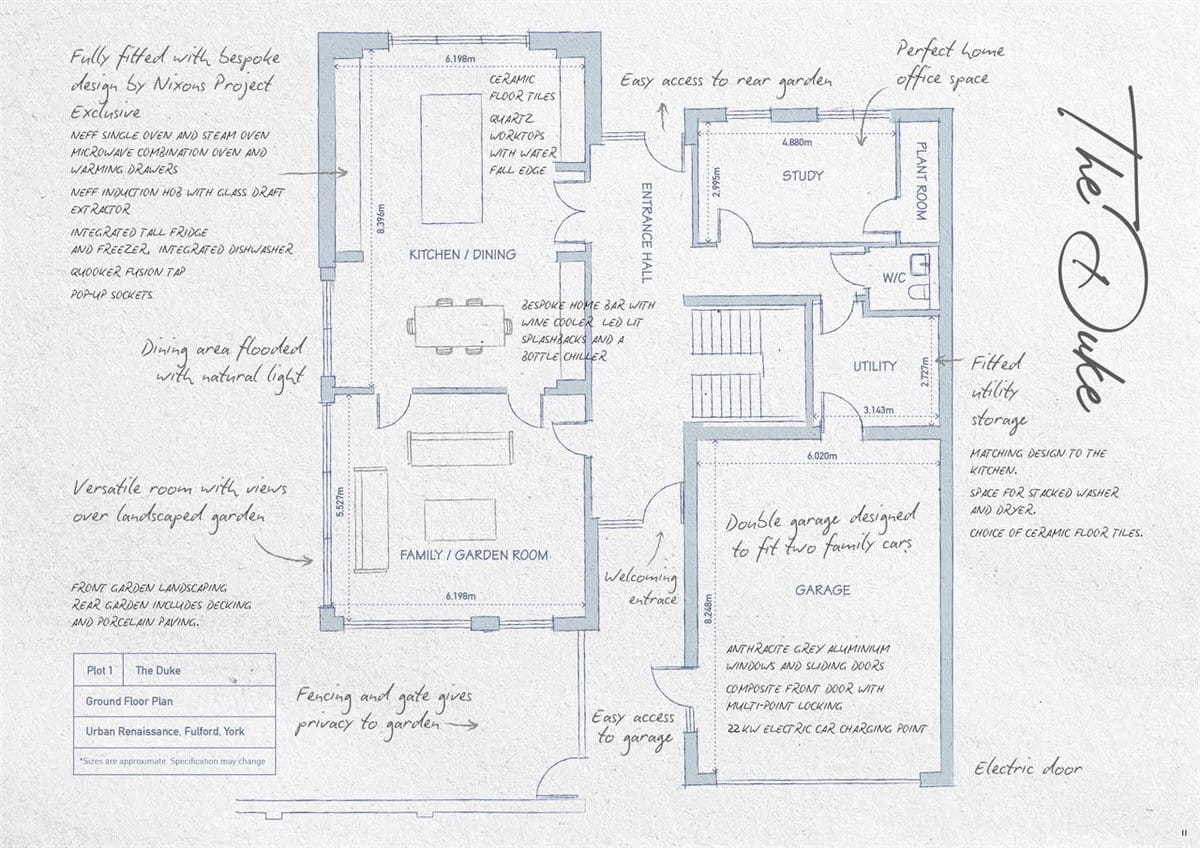 Fully fitted with bespoke
design by Nixons Project
Exclusive
NEFF SINGLE OVEN AND STEAM OVEN
MICROWAVE COMBINATION OVEN AND
WARMING DRAWERS
NEFF INDUCTION HOB WITH GLASS DRAFT
EXTRACTOR
INTEGRATED TALL FRIDGE
AND FREEZER, INTEGRATED DISHWASHER
QUOOKER FUSION TAP
POP-UP SOCKETS
Dining area flooded
with natural light
Versatile room with views
over landscaped garden
FRONT GARDEN LANDSCAPING
REAR GARDEN INCLUDES DECKING
AND PORCELAIN PAVING.
Plot 1 The Duke
Ground Floor Plan
Urban Renaissance, Fulford, York
*Sizes are approximate. Specification may change
6.198m
CERAMIC
FLOOR TILES
QUARTZ
WORKTOPS
WITH WATER
FALL EDGE
8.396m
KITCHEN / DINING
BESPOKE HOME BAR WITH
WINE COOLER LED LIT
SPLASHBACKS AND A
BOTTLE CHILLER
5.527m
FAMILY / GARDEN ROOM
6.198m
Fencing and gate gives
privacy to garden
Easy access to rear garden
ENTRANCE HALL
Welcoming
entrace
Easy access
to garage
Perfect home
office space
4.880m
2.995m
STUDY
PLANT ROOM
W/C
UTILITY
2.727m
3.143m
Fitted
utility
storage
MATCHING DESIGN TO THE
KITCHEN.
SPACE FOR STACKED WASHER
AND DRYER.
CHOICE OF CERAMIC FLOOR TILES.
6,020m
Double garage designed
to fit two family cars
GARAGE
8.248m
ANTHRACITE GREY ALUMINIUM
WINDOWS AND SLIDING DOORS
COMPOSITE FRONT DOOR WITH
MULTI-POINT LOCKING
22KW ELECTRIC CAR CHARGING POINT
Electric door
The Duke
11